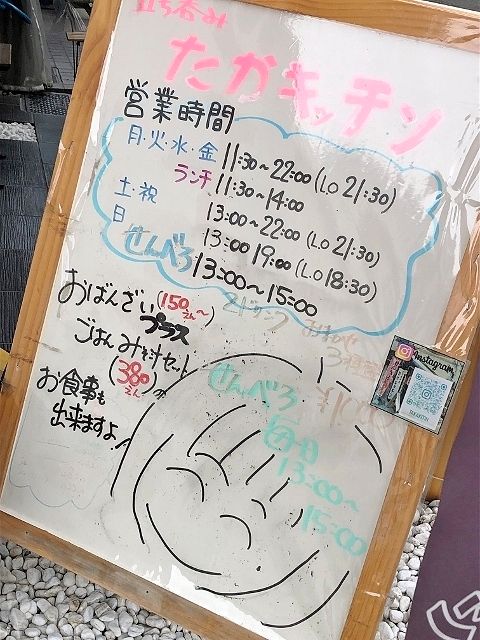 立ち呑み
たかキッチン
営業時間
月・火・水・金 11:30~22:00 (L.O 21:30)
ランチ 11:30~14:00
土・祝 13:00~22:00 (L.O 21:30)
日 13:00 19:00 (L.O 18:30)
せんべろ 13:00~15:00
おばんざい (150えん~)
プラス
ごはんみそ汁セット
(380えん)で
お食事も
出来ますよ!
2ドリンク
3種盛
せんべろ ¥1000
毎日
13:00~
15:00
Instagram